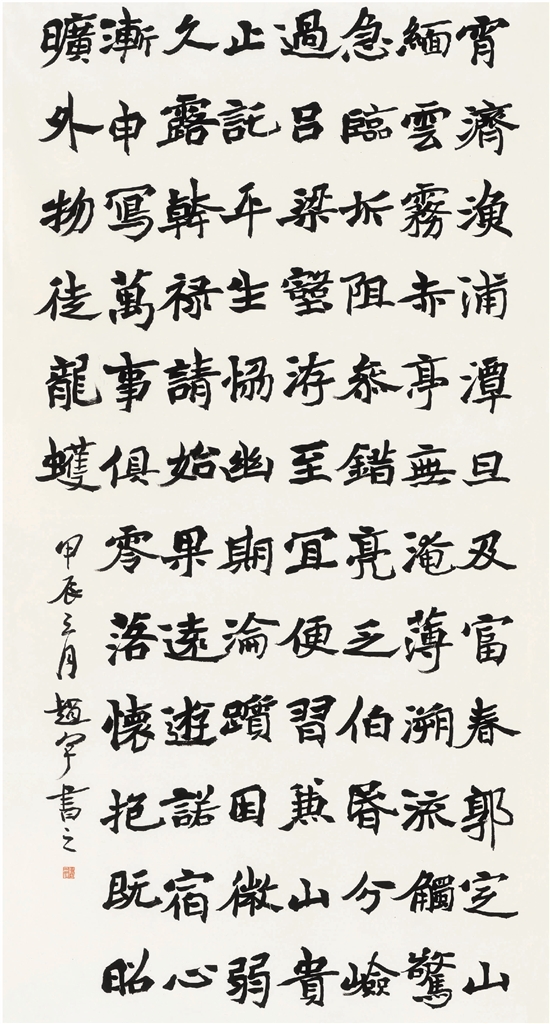 宵濟漁浦潭旦及富春郭定山
緬雲霧赤亭無淹薄溯流觸驚
急臨圻阻參錯亮乏伯昏分嶮
過呂梁壑洊至宜便習兼山貴
止託平生協幽期淪躓困微弱
久露幹禄請始果遠遊諾宿心
漸申寫萬事俱零落懷抱既昭
曠外物徒龍蠖
甲辰三月趙宇書之